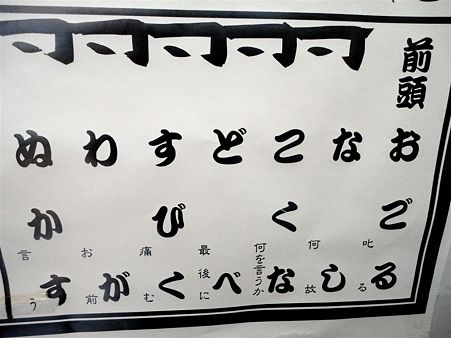 前頭
おごる
叱る
なし
何故
こくな
何を言うか
どべ
最後に
すびく
痛む
わが
お前
ぬかす
言う